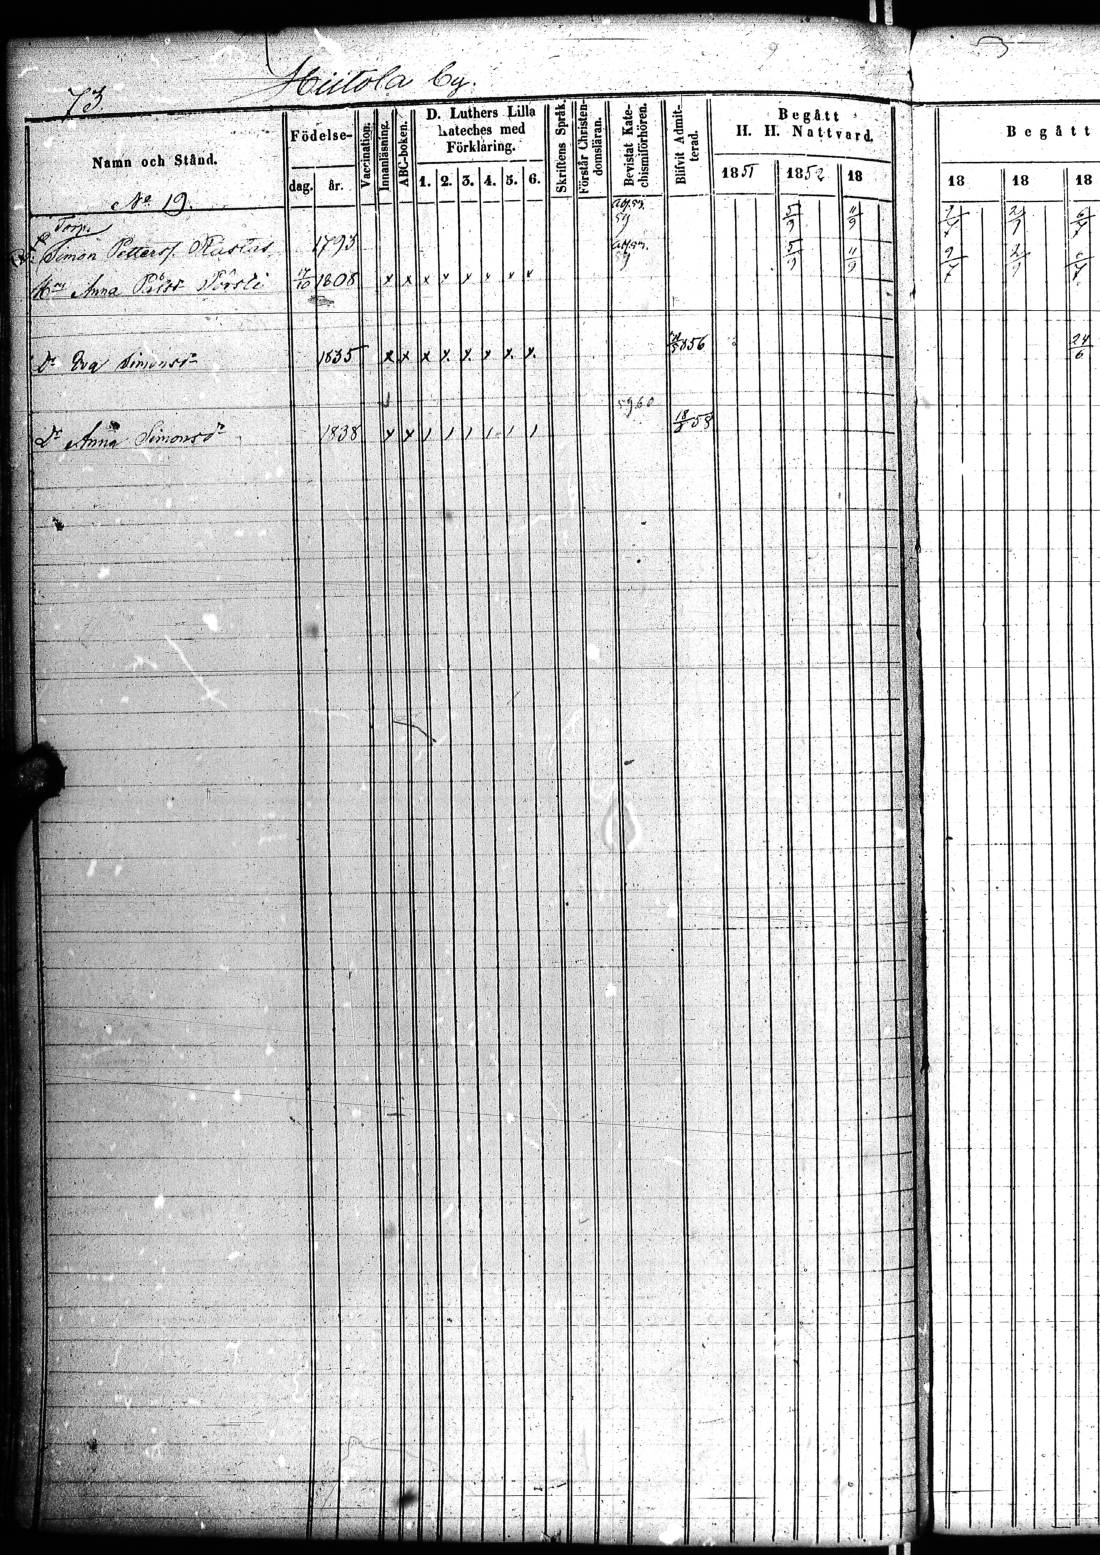 73
Hiitola by.
Namn och Stånd.
Födelse-
dag. år.
Vaccination.
Innanläsning.
ABC-boken.
D. Luthers Lilla
Kateches med
Förklaring.
1. 2. 3. 4. 5. 6.
Skriftens Språk.
Förstår Christen-
domsläran.
Bevistat Kate-
chismiförhören.
Blifvit Admit-
terad.
Begått
H. H. Nattvard.
1851 1852 18
Begått
18 18 18
No 19.
Torp.
Simon Petterss. 1793 59 5/9 11/9
Hus Anna 17/10 1808 x x x x x x x x 59 5/9 11/9
Dr Eva Simonsdr 1835 x x x x x x x x 1856 24/6
5960
Dr Anna Simonsdr 1838 x x 1 1 1 1 1 1 58